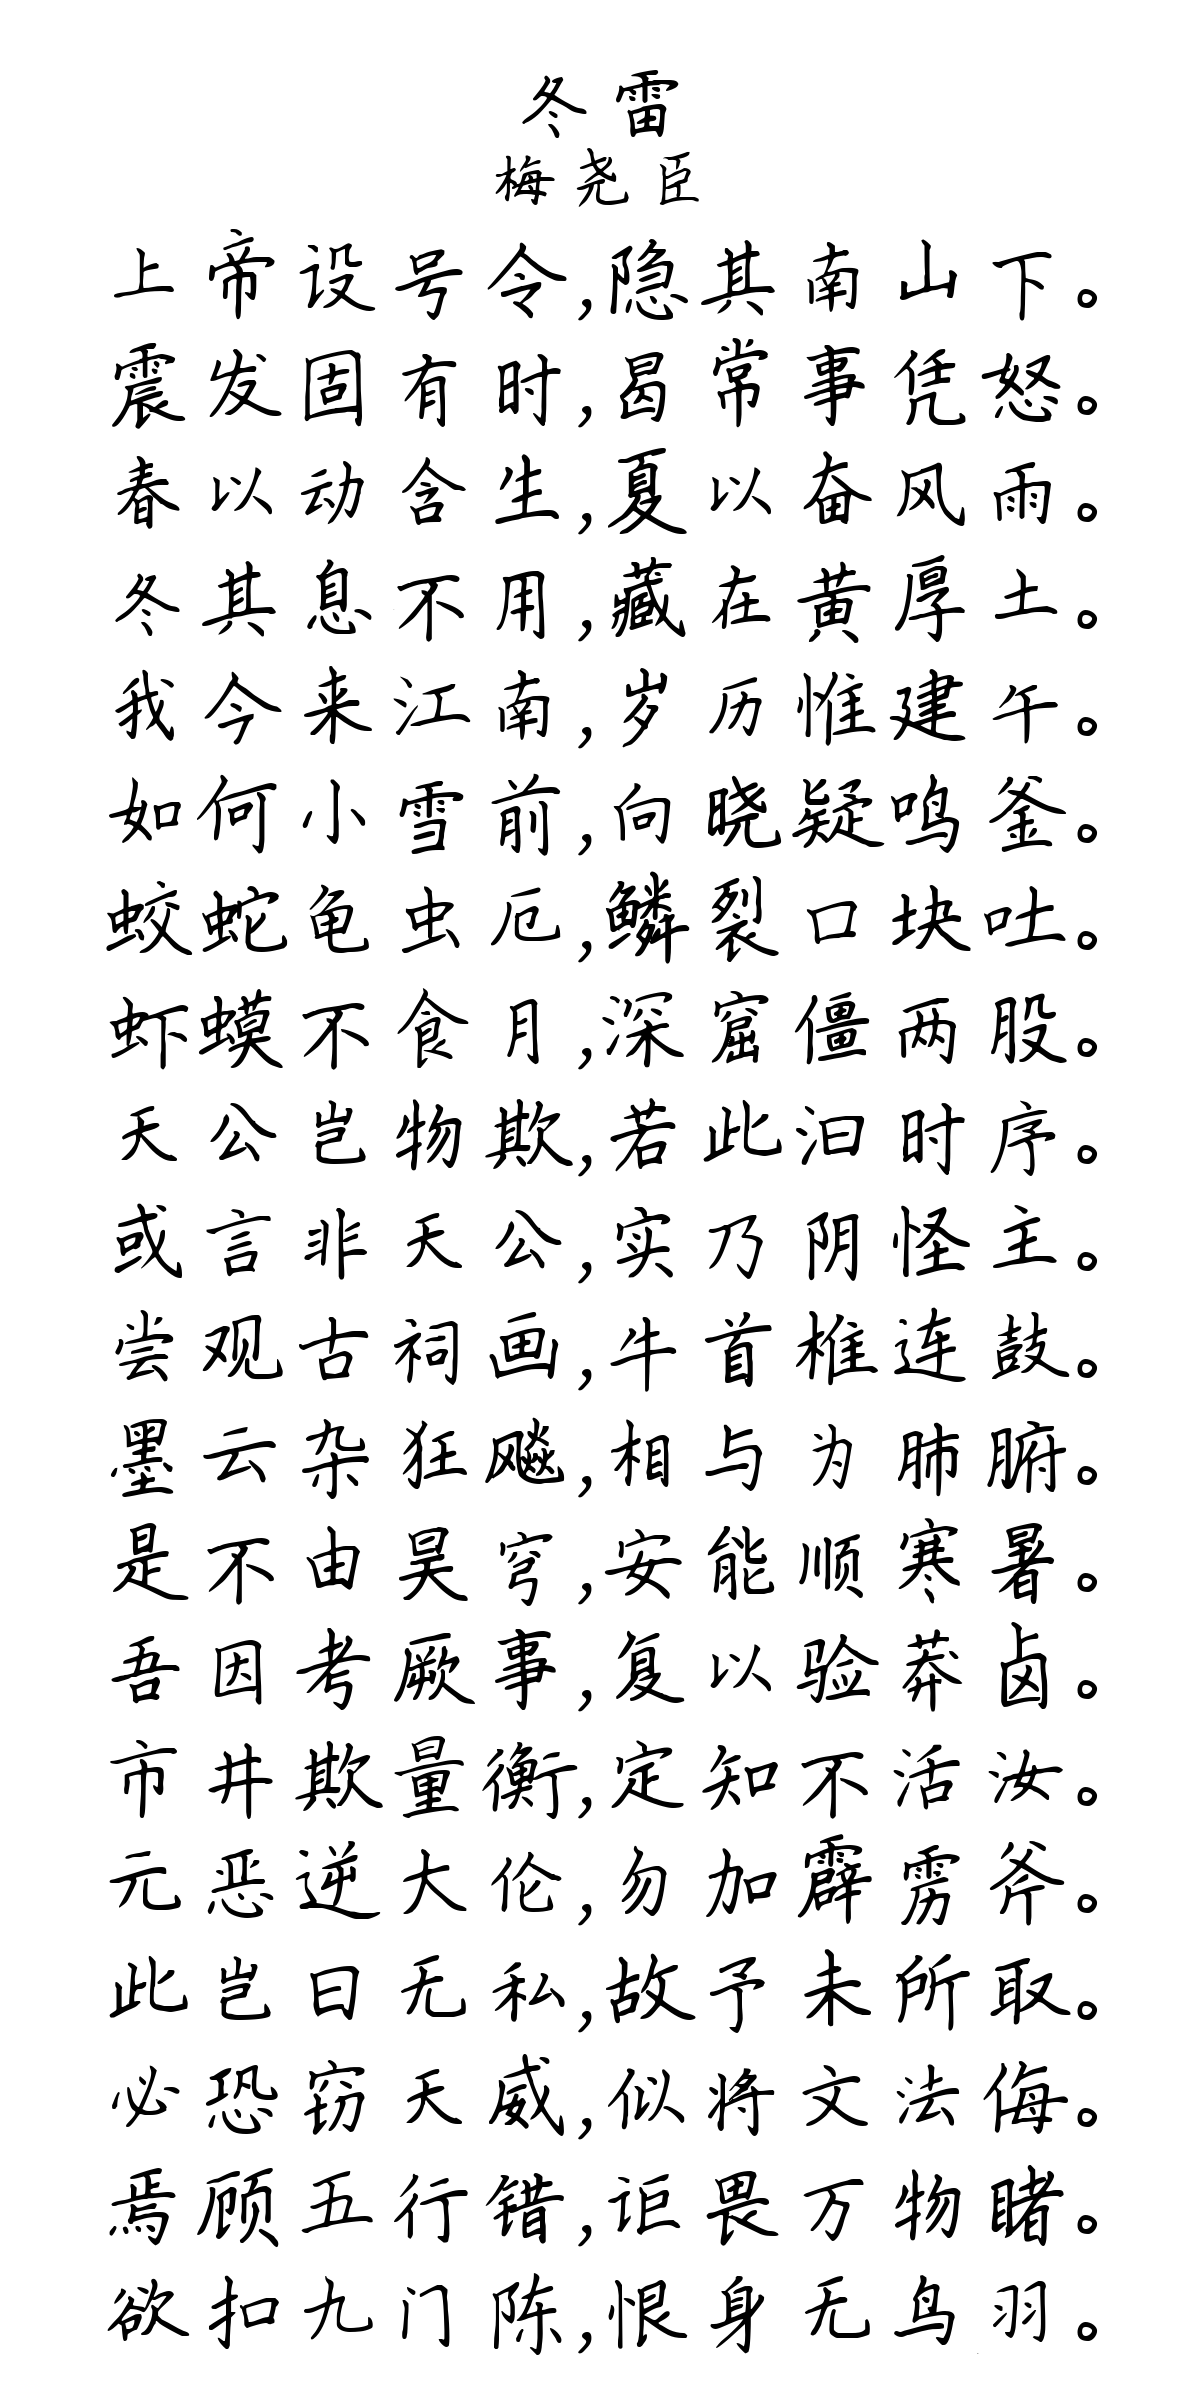 冬雷
梅尧臣
上帝设号令,隐其南山下。
震发固有时,曷常事凭怒。
春以动含生,夏以奋风雨。
冬其息不用,藏在黄厚土。
我今来江南,岁历惟建午。
如何小雪前,向晓疑鸣釜。
蛟蛇龟虫厄,鳞裂口块吐。
虾蟆不食月,深窟僵两股。
天公岂物欺,若此汩时序。
或言非天公,实乃阴怪主。
尝观古祠画,牛首椎连鼓。
墨云杂狂飚,相与为肺腑。
是不由昊穹,安能顺寒暑。
吾因考厥事,复以验莽卤。
市井欺量衡,定知不活汝。
元恶逆大伦,勿加霹雳斧。
此岂曰无私,故予未所取。
必恐窃天威,似将文法侮。
焉顾五行错,讵畏万物睹。
欲扣九门陈,恨身无鸟羽。